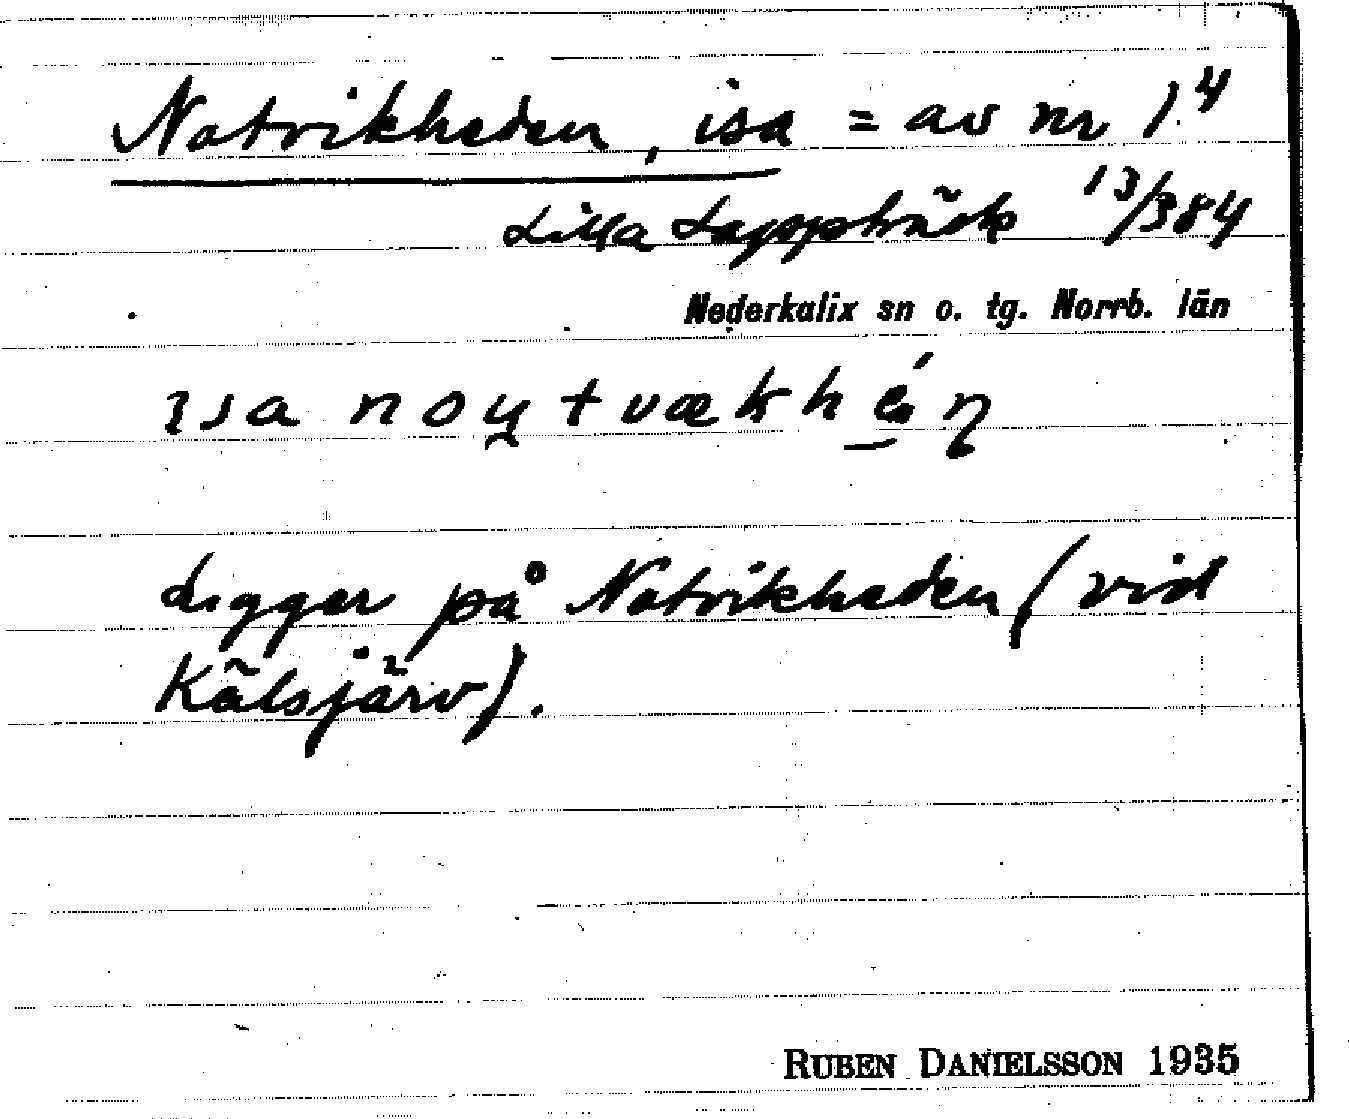 Notvikheden, isa = av nr 1.4
Lilla Lappträsk 13/384
Nederkalix sn o. tg. Norrb. län
ɪsa nou̯tvækhén
Ligger på Notvikheden (vid
Kälsjärv).
RUBEN DANIELSSON 1935